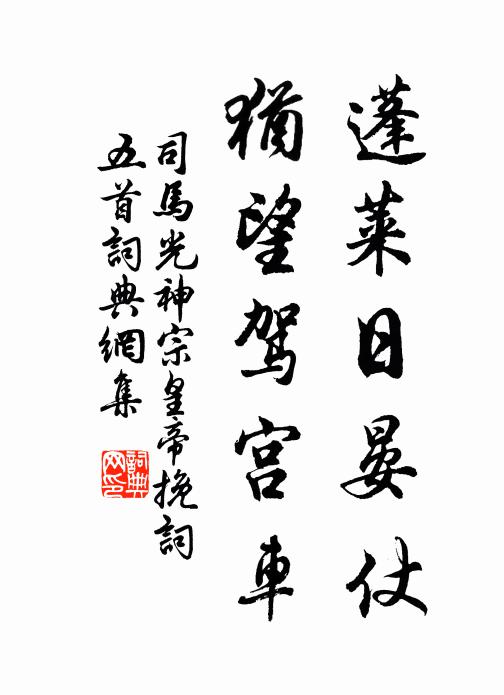 蓬莱日晏仗
猶望驾宫車
司馬光神宗皇帝挽詞
五首詞典網集
詞典
网印